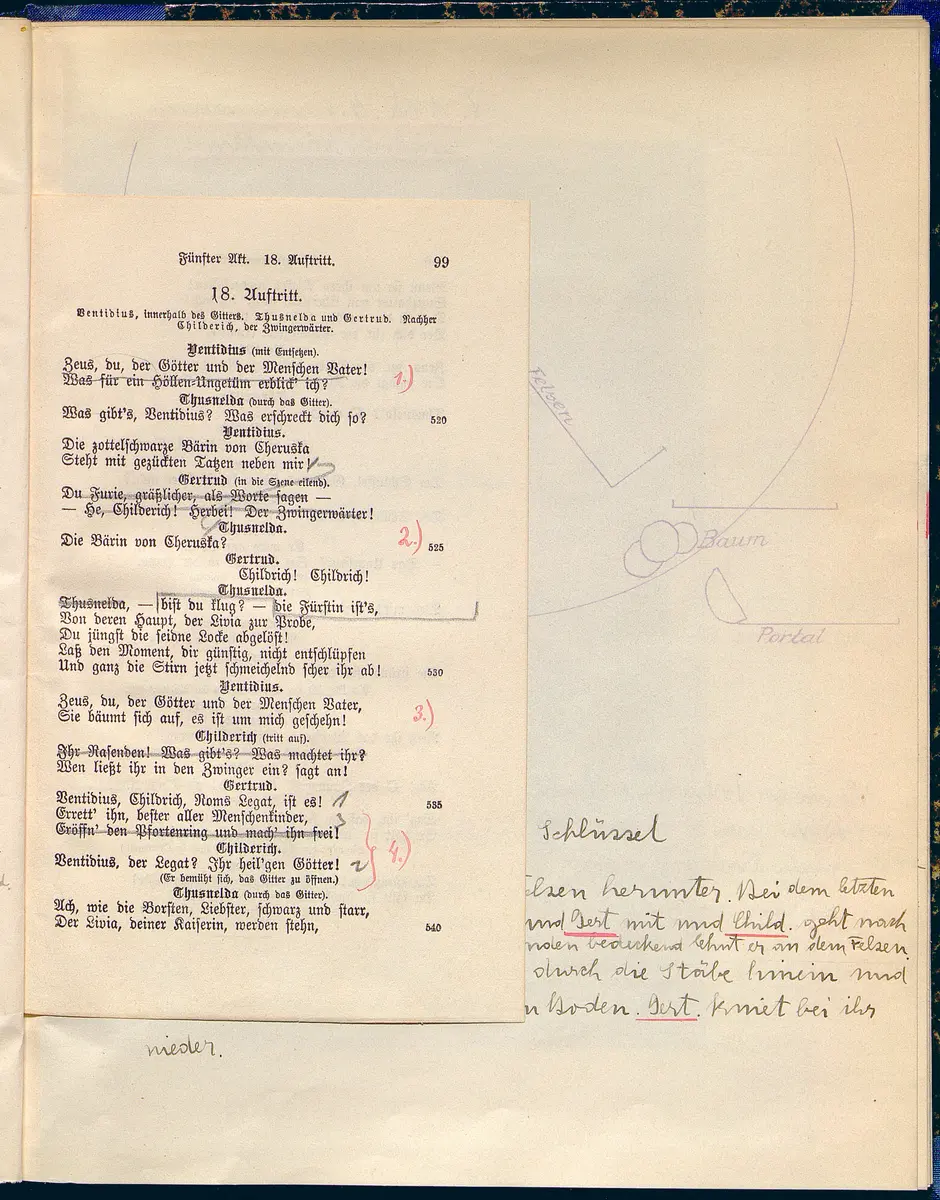 Fünfter Akt. 18. Auftritt. 99
18. Auftritt.
Ventidius, innerhalb des Gitters. Thusnelda und Gertrud. Nachher
Childerich, der Zwingerwärter.
Ventidius (mit Entsetzen).
Zeus, du, der Götter und der Menschen Vater!
Was für ein Höllen-Ungetüm erblick' ich?
1.)
Thusnelda (durch das Gitter).
Was gibt's, Ventidius? Was erschreckt dich so? 520
Ventidius.
Die zottelschwarze Bärin von Cheruska
Steht mit gezückten Tatzen neben mir!
Gertrud (in die Szene eilend).
Du Furie, gräßlicher, als Worte sagen —
— He, Childerich! Herbei! Der Zwingerwärter!
Thusnelda.
Die Bärin von Cheruska? 525
2.)
Gertrud.
Childrich! Childrich!
Thusnelda.
Thusnelda, — bist du klug? — die Fürstin ist's,
Von deren Haupt, der Livia zur Probe,
Du jüngst die seidne Locke abgelöst!
Laß den Moment, dir günstig, nicht entschlüpfen
Und ganz die Stirn jetzt schmeichelnd scher ihr ab! 530
Ventidius.
Zeus, du, der Götter und der Menschen Vater,
Sie bäumt sich auf, es ist um mich geschehn!
3.)
Childerich (tritt auf).
Ihr Rasenden! Was gibt's? Was machtet ihr?
Wen ließt ihr in den Zwinger ein? sagt an!
Gertrud.
Ventidius, Childrich, Roms Legat, ist es! 1 535
Errett' ihn, bester aller Menschenkinder,
Eröffn' den Pfortenring und mach' ihn frei! 3
Childerich.
4.)
Ventidius, der Legat? Ihr heil'gen Götter! 2
(Er bemüht sich, das Gitter zu öffnen.)
Thusnelda (durch das Gitter).
Ach, wie die Borsten, Liebster, schwarz und starr,
Der Livia, deiner Kaiserin, werden stehn, 540
Felsen
Baum
Portal
Schlüssel
elsen herunter. Bei dem letzten
und Gert mit und Child. geht nach
nden bedeckend lehnt er an dem Felsen.
durch die Stäbe hinein und
Boden. Gert. kniet bei ihr
nieder.